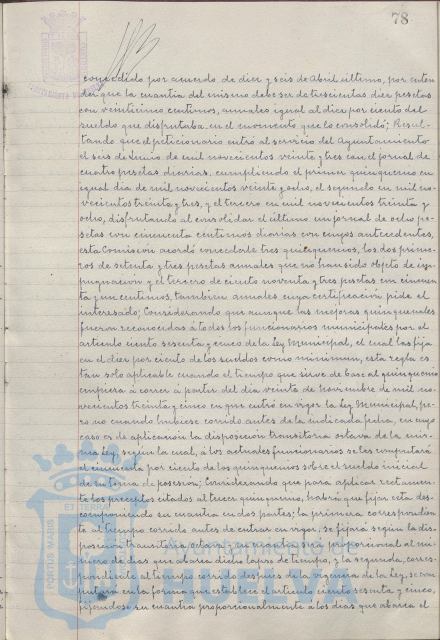 78
concedido por acuerdo de diez y seis de Abril último, por enten
der que la cuantía del mismo debe ser de trescientas diez pesetas
con veinticinco centimos, anuales igual al diez por ciento del
sueldo que disfrutaba, en el momento que lo consolidó; Resul-
tando que el peticionario entró al servicio del Ayuntamiento
el seis de Junio de mil novecientos veinte y tres con el jornal de
cuatro pesetas diarias, cumpliendo el primer quinquenio en
igual dia de mil novecientos veinte y ocho, el segundo en mil no-
vecientos treinta y tres, y el tercero en mil novecientos treinta y
ocho, disfrutando al consolidar el último un jornal de ocho pe-
setas con cincuenta centimos diarias con cuyos antecedentes,
esta Comisión acordó concederle tres quinquenios, los dos prime-
ros de setenta y tres pesetas anuales que no han sido objeto de im
pugnación y el tercero de ciento noventa y tres pesetas con cincuen
ta y un centimos, tambien anuales cuya certificación pide el
interesado; Considerando que aunque las mejoras quinquenales
fueron reconocidas á todos los funcionarios municipales por el
articulo ciento sesenta y cinco de la Ley Municipal, el cual las fija
en el diez por ciento de los sueldos como minimum, esta regla es
tan solo aplicable cuando el tiempo que sirve de base al quinquenio
empieza á correr á partir del dia veinte de Noviembre de mil no-
vecientos treinta y cinco en que entró en vigor la Ley Municipal, pe-
ro no cuando hubiese corrido antes de la indicada fecha, en cuyo
caso es de aplicación la disposición transitoria octava de la mis-
ma Ley, según la cual, á los actuales funcionarios se les computará
el cincuenta por ciento de los quinquenios sobre el sueldo inicial
de su toma de posesión; Considerando que para aplicar rectamen-
te los preceptos citados al tercer quinquenio, habrá que fijar esta des-
componiendo su cuantia en dos partes; la primera correspondien
te al tiempo corrido antes de entrar en vigor, se fijará según la dis-
posición transitoria octava, en cuantia proporcional al nú-
mero de dias que abarca dicho lapso de tiempo, y la segunda, corres-
pondiente al tiempo corrido despues de la vigencia de la Ley, se com
putará en la forma que establece el articulo ciento sesenta y cinco,
fijandose su cuantia proporcionalmente a los dias que abarca el
PORTUS MARIS
ET TERRÆ
Ayuntamiento de
HUELVA